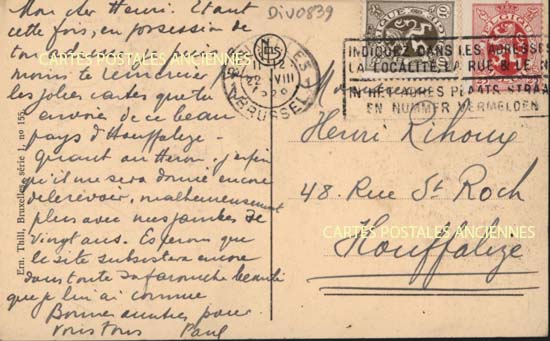 Mon cher Henri. Etant
cette fois, en possession de
ton adresse, je puis au
moins te remercier
les jolies cartes que tu
envoies de ce beau
pays d'Houffalize.
Quant au Héron,
qu'il me sera donné encore
de le revoir, malheureusement
plus avec mes jambes de
vingt ans. Espérons que
le site subsistera encore
dans toute sa farouche beauté
que je lui ai connue
Bonnes amitiés pour
vous tous Paul
Div0839
Ern. Thill, Bruxelles, série 1, no 155
11-12
22 VIII
BRUSSEL
BELGIQUE
INDIQUEZ DANS LES ADRESSES
LA LOCALITE, LA RUE & LE N
IN HET ADRES PLAATS STRAA
EN NUMMER VERMELDEN
Henri Rihoux
48. Rue St Roch
Houffalize
CARTES POSTALES ANCIENNES
CARTES POSTALES ANCIENNES
CARTES POSTALES ANCIENNES